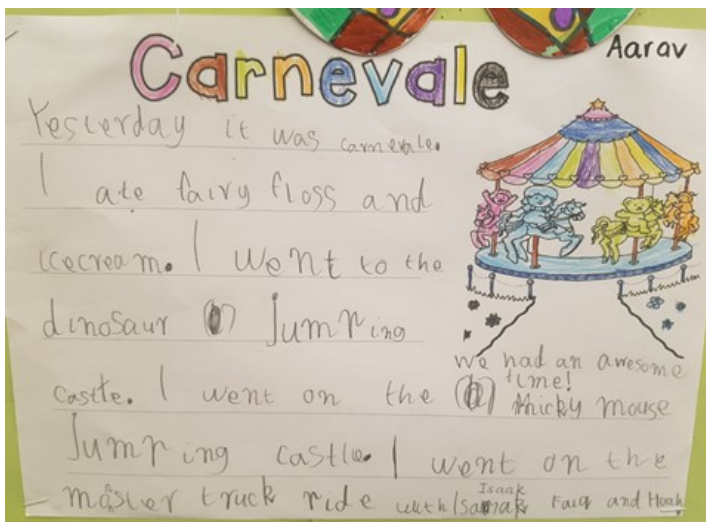 Carnevale
Aarav
Yesterday it was carnevale.
I ate fairy floss and
icecream. I went to the
dinosaur Jumping
castle. I went on the micky mouse
Jumping castle. I went on the
master truck ride with Isaak and Noah
we had an awesome
time!